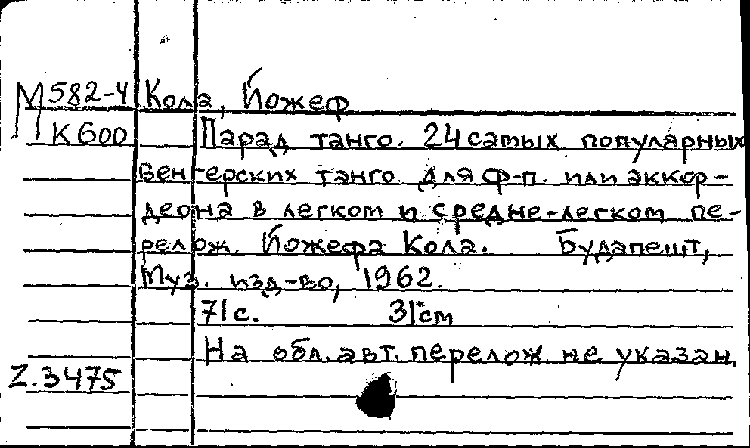 М582-4 Кола, Йожеф
К600 Парад танго. 24 самых популярных
венгерских танго для ф-п. или аккор-
деона в легком и средне-легком пе-
релож. Йожефа Кола. Будапешт,
Муз. изд-во, 1962.
71 с. 31 см
На обл. авт. перелож. не указан.
Z.3475